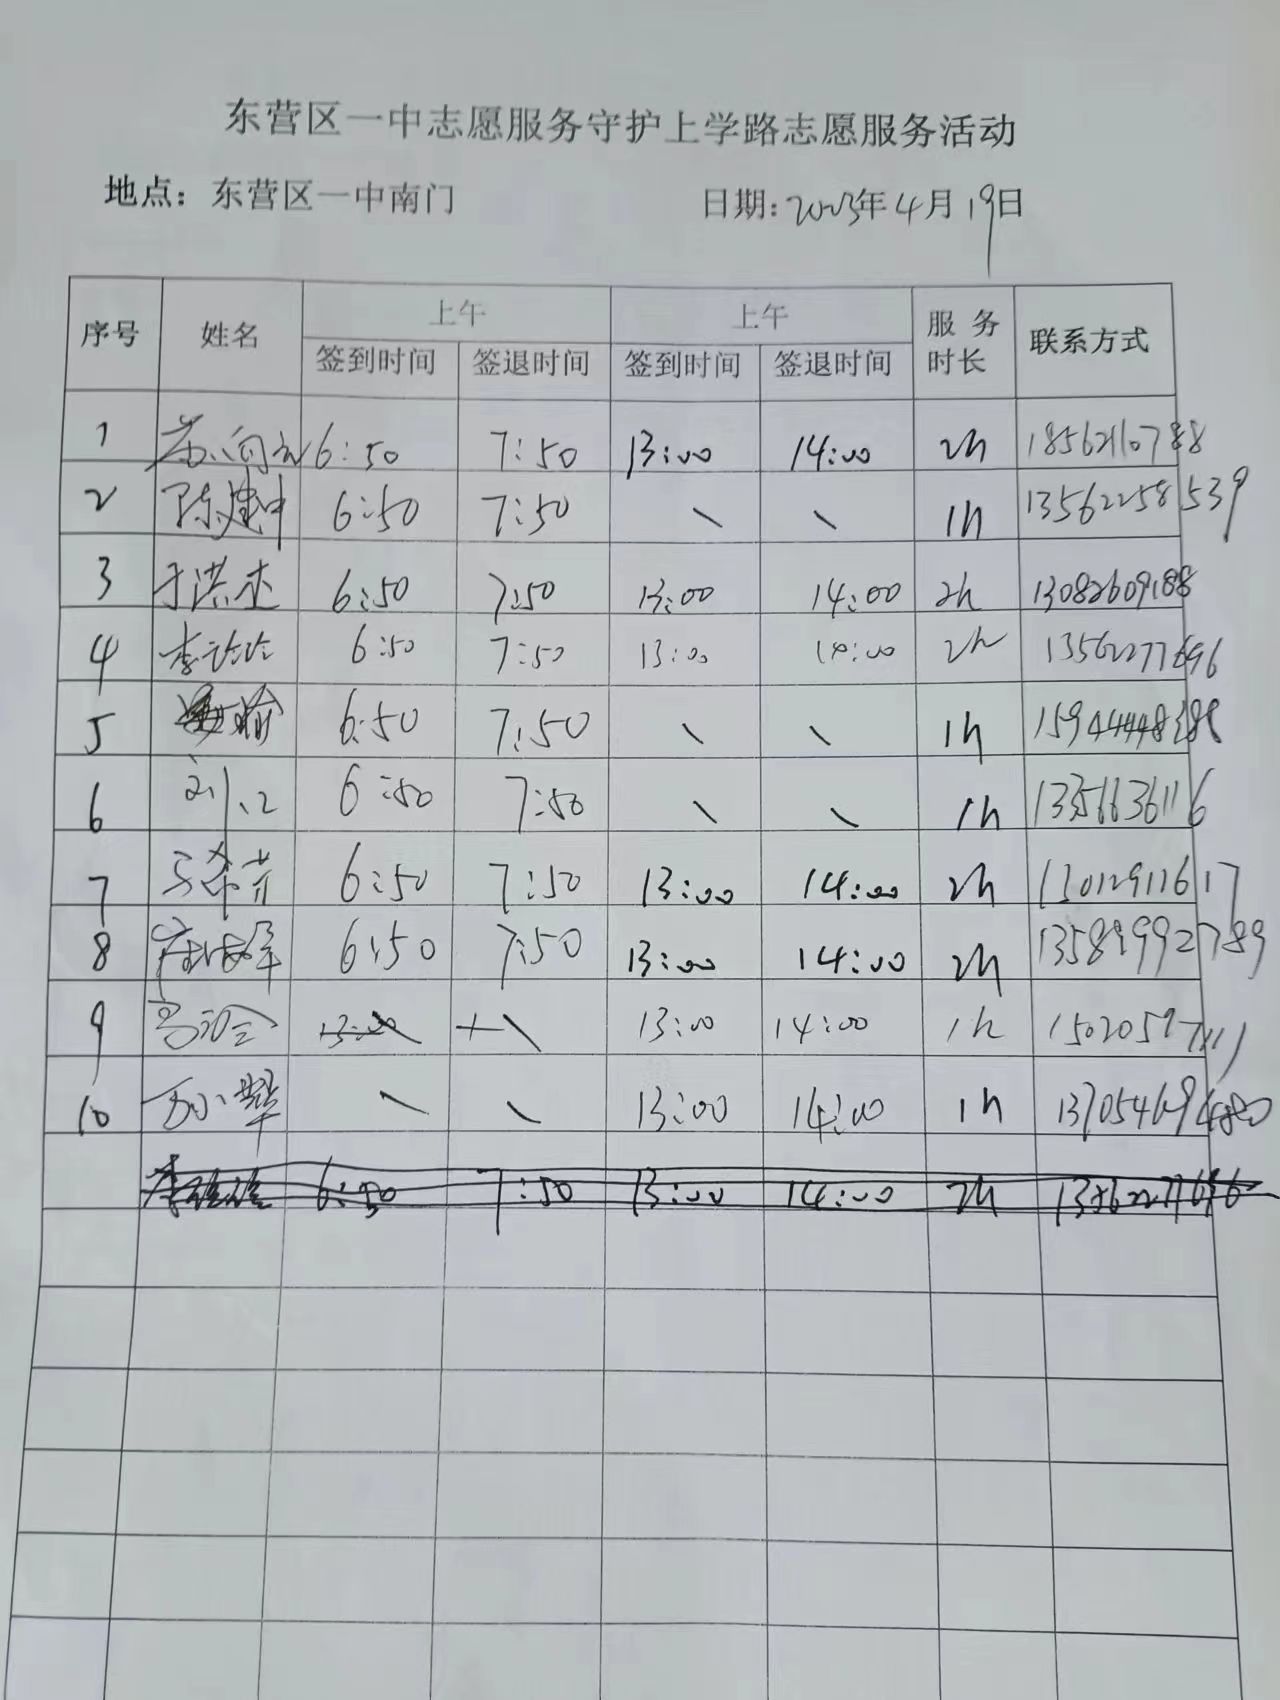 东营区一中志愿服务守护上学路志愿服务活动
地点：东营区一中南门 日期：2023年4月19日
序号 姓名 上午 上午 服务时长 联系方式
签到时间 签退时间 签到时间 签退时间
1 6:50 7:50 13:00 14:00 2h 18562110788
2 陈建中 6:50 7:50 \ \ 1h 13562258539
3 于洪杰 6:50 7:50 13:00 14:00 2h 13082609188
4 李 6:50 7:50 13:00 14:00 2h 13562277696
5 6:50 7:50 \ \ 1h
6 刘 6:50 7:50 \ \ 1h
7 6:50 7:50 13:00 14:00 2h 15012911617
8 6:50 7:50 13:00 14:00 2h 13589992789
9 13:00 \ \ 13:00 14:00 1h
10 \ \ 13:00 14:00 1h 13705469480
李 6:50 7:50 13:00 14:00 2h 13562277696